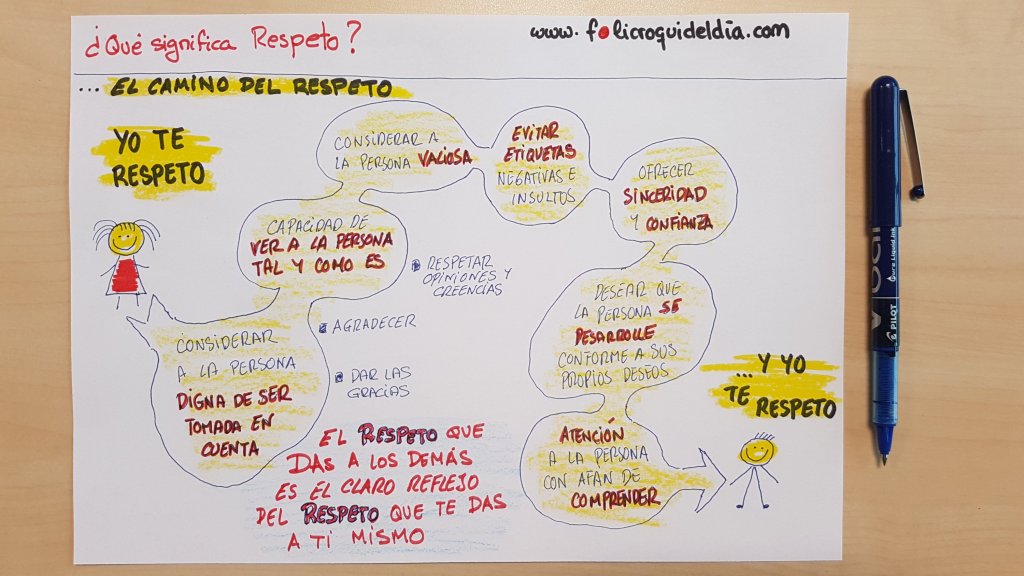 ¿Qué significa Respeto?
www.felicroquideldia.com
... EL CAMINO DEL RESPETO
YO TE
RESPETO
CONSIDERAR
A LA PERSONA
DIGNA DE SER
TOMADA EN
CUENTA
CAPACIDAD DE
VER A LA PERSONA
TAL Y COMO ES
CONSIDERAR A
LA PERSONA VALIOSA
EVITAR
ETIQUETAS
NEGATIVAS E
INSULTOS
OFRECER
SINCERIDAD
Y CONFIANZA
DESEAR QUE
LA PERSONA SE
DESARROLLE
CONFORME A SUS
PROPIOS DESEOS
ATENCIÓN
A LA PERSONA
CON AFAN DE
COMPRENDER
RESPETAR
OPINIONES Y
CREENCIAS
AGRADECER
DAR LAS
GRACIAS
... Y YO
TE RESPETO
EL RESPETO QUE
DAS A LOS DEMÁS
ES EL CLARO REFLEJO
DEL RESPETO QUE TE DAS
A TI MISMO
PILOT